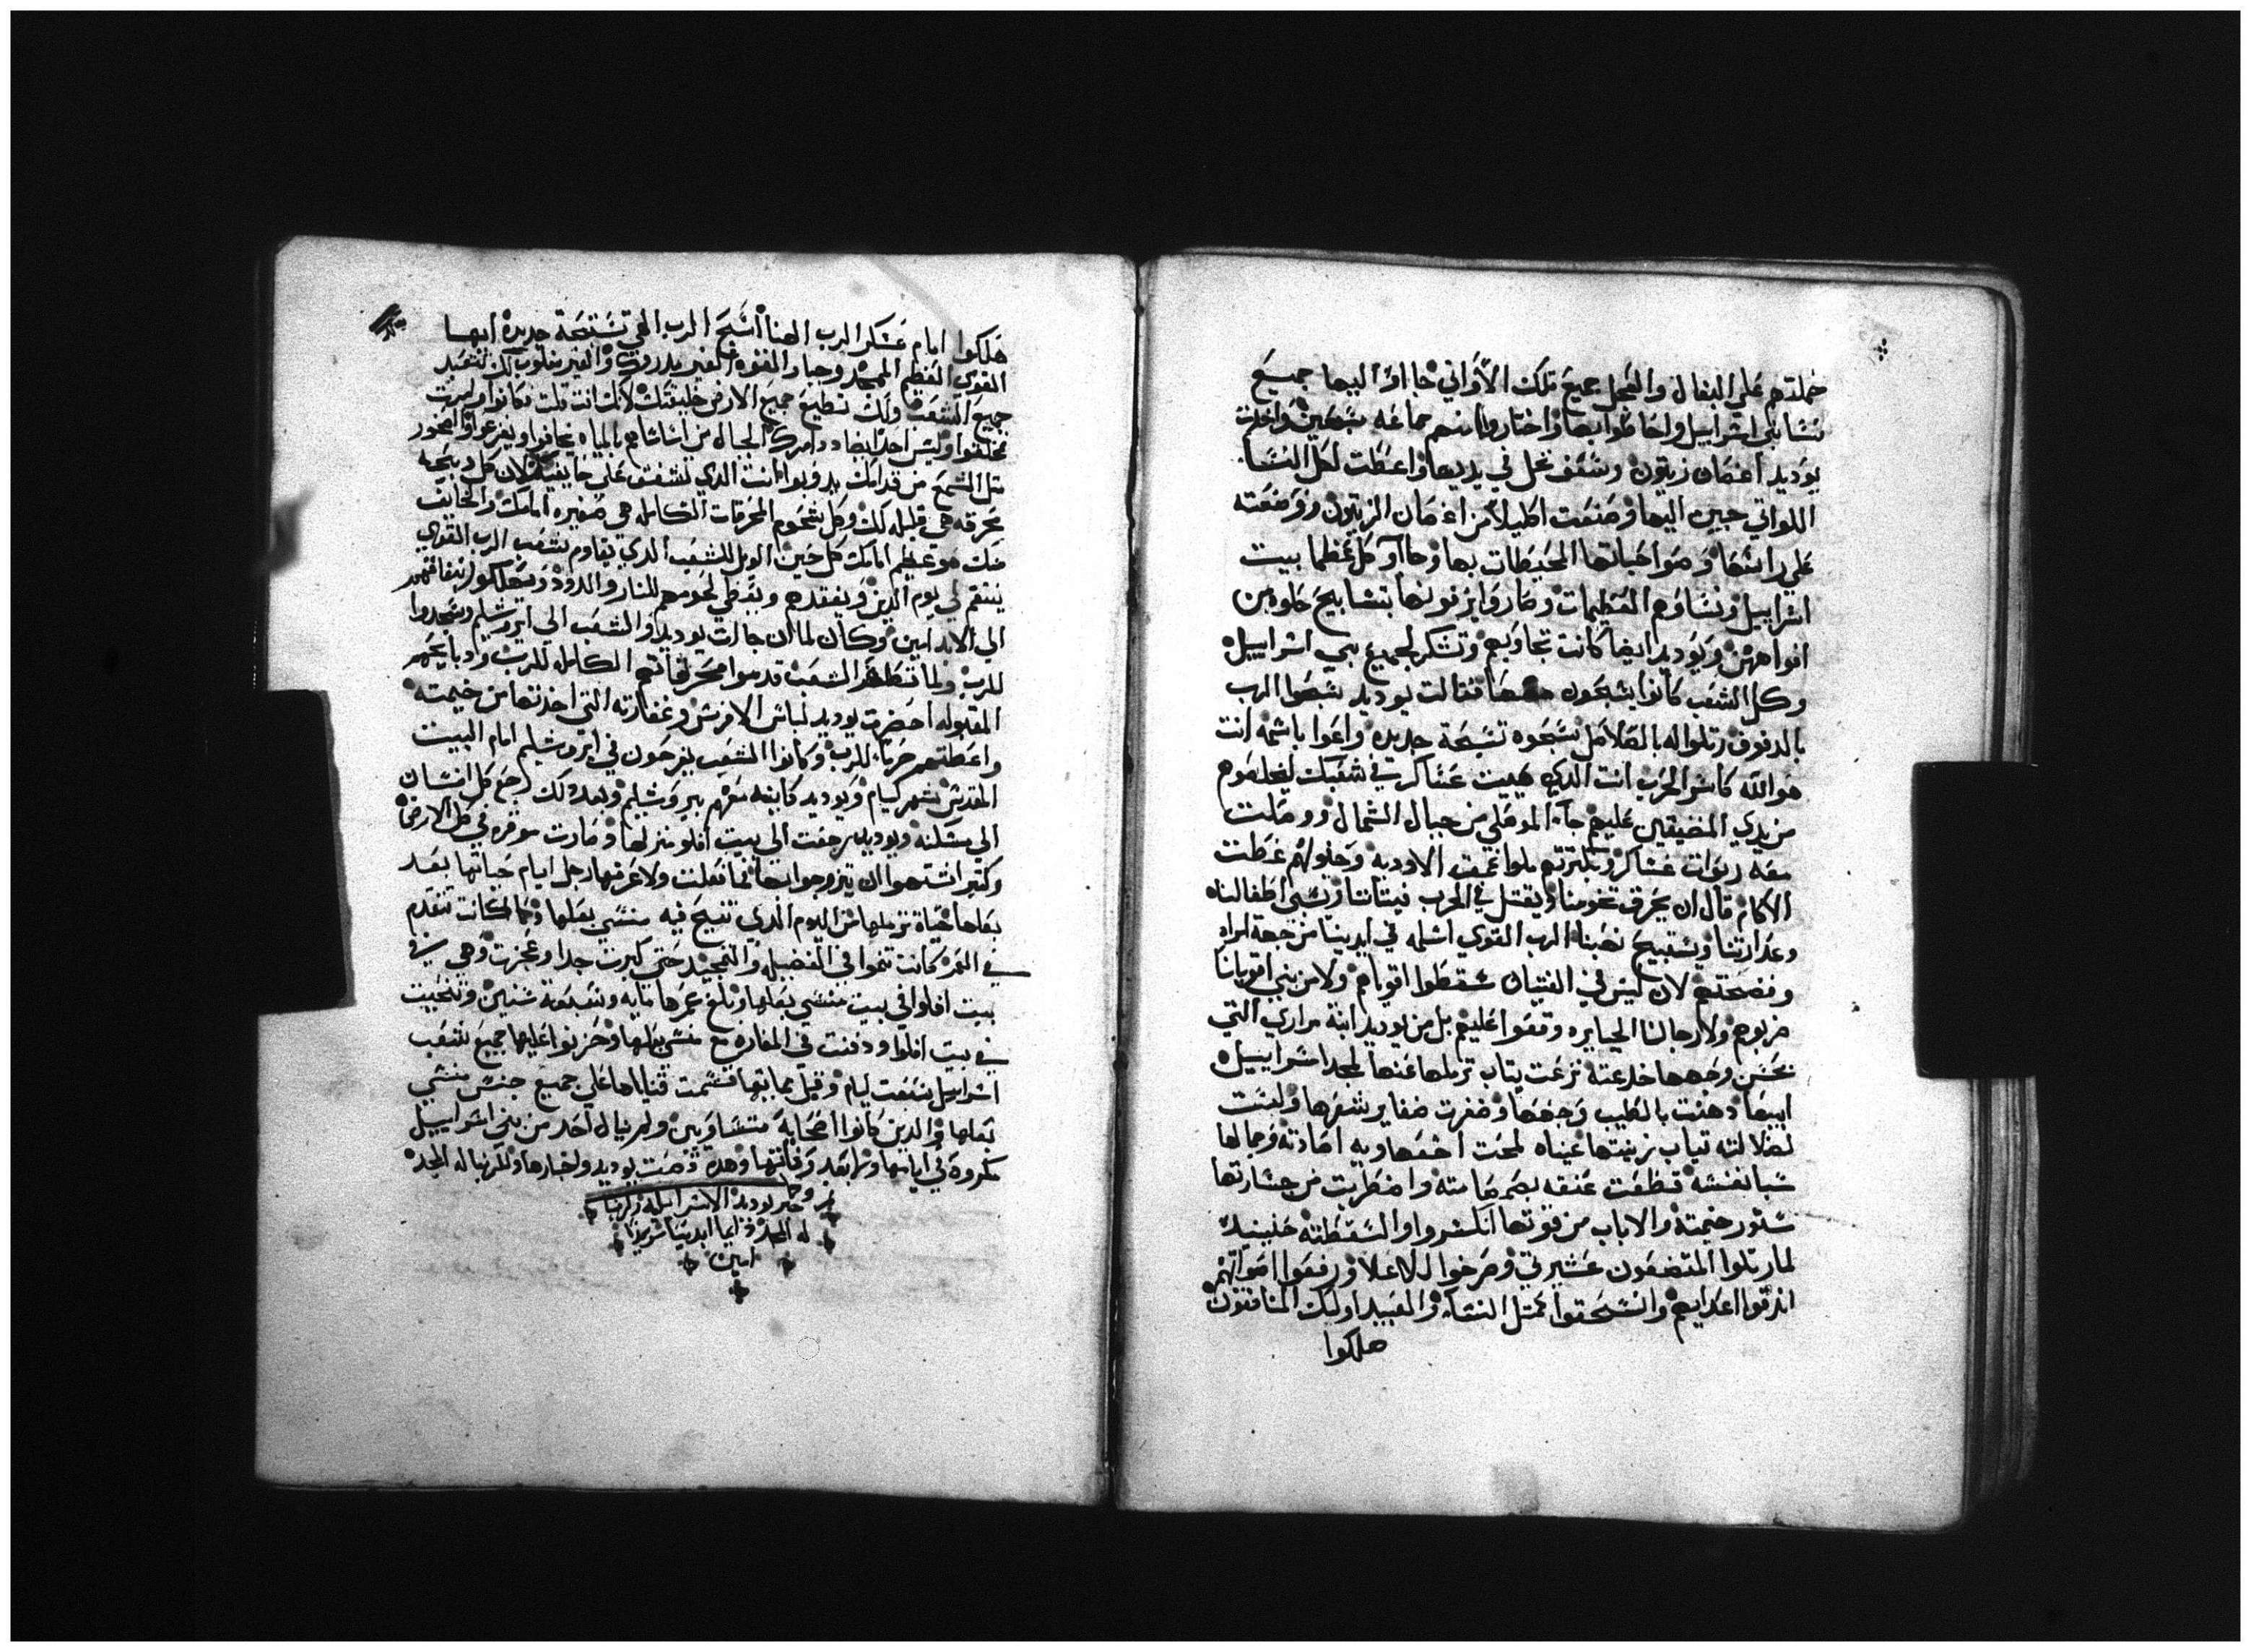 حملتهم علي البغال والعجل جميع تلك الاواني جااوا اليها جميع
نسا بني اسراييل واحاطوا بها واختاروا منهم جماعه يسبحون واخدت
يوديد اغصان زيتون وسعف نخل في يديها واعطت لكل النسا
اللواتي حيين اليها وصنعت اكليلا من اغصان الزيتون ووضعته
علي راسها وصواحباتها المحيطات بها وجااو كل عظما بيت
اسراييل ونساوهم العظيمات وصاروا يزفونها بتسابيح حلوه من
افواههن ويوديد ايضا كانت تجاوبهم وتشكر لجميع بني اسراييل
وكل الشعب كانوا يسبحون معها فقالت يوديد سبحوا الرب
بالدفوف رتلوا له بالصلاصل سبحوه تسبحة جديده وادعوا باسمه انت
هو الله كاسر الحرب انت الدي هييت عساكر في شعبك ليخلصوهم
من يدي المضيقين عليهم جاء الموصلي من جبال الشمال ووصلت
معه ربوات عساكر وبكترتهم ملوا عمق الاوديه وخيولهم غطت
الاكام قال ان يحرق تخومنا ويقتل في الحرب فتياننا ويسبي اطفالناه
وعدارتنا ويستبيح نهبنا الرب القوي اسلمه في ايدينا من جهة امراه
وفضحتهم لان ليس في الفتيان سقطوا اقوياهم ولا من بني اقويانا
ضربوهم ولا رجالنا الجبابره وقفوا عليهم بل من يوديد ابنة مراري التي
بحسن وجهها خدعته نزعت تياب ترملها عنها لمجد اسراييل
ابيها دهنت بالطيب وجهها وضفرت ضفاير شعرها ولبست
لضلالته تياب زينتها عيناه لمحت اخفها وبه اصادته وجمالها
سبا نفسه قطعت عنقه بصمصامته واضطربت من جسارتها
ستور خيمته والابواب من قوتها انكسروا والسقطته حينيد
لما رتلوا المتضعون عشيرتي وصرخوا للاعلا ورفعوا اصواتهم
اندقوا اعدايهم وانسحقوا كمتل النسا والعبيد اوليك المنافقون
هلكوا
هلكوا امام عسكر الرب الهنا اسبح الرب الهي تسبحة جديده ايها
القوي العظيم الممجد وجبار القوه الغير مدروك والغير مغلوب لك تتعبد
جميع الشعب ولك تطيع جميع الارض خليقتك لانك انت قلت فكانوا وامرت
فخلقوا وليس احد يضاددا امرك الجبال من اساساتهم بالمياه يخافوا ويفزعوا والصخور
متل الشمع من قدامك يدوبوا انت الدي تشفق علي خايفيك لان كل دبيحه
محرقه هي قليله لك وكل شحوم المحرقات الكامله هي صغيره امامك والخايف
منك هو عظيم امامك كل حين الويل للشعب الدي يقاوم شعب الرب القوي
ينتقم لي يوم الدين ويفتقدهم ويعطي لحومهم للنار والدود ويهلكوا بنفاقهم
الي الابد امين وكان لما ان جاات يوديد والشعب الي ايروشليم وسجدوا
للرب ولما تطهر الشعب قدموا محرقاتهم الكامله للرب ودبايحهم
المقبوله احضرت يوديد لباس الافرنس وغفارته التي اخدتها من خيمته
واعطتهم حرما للرب وكانوا الشعب يفرحون في ايروشليم امام البيت
المقدس شهر ايام ويوديد كاينه معهم بيروشليم وبعد دلك رجع كل انسان
الي مسكنه ويوديد رجعت الي بيت افلو منزلها وصارت موقره في كل الارض
وكتير اشتهوا ان يتزوجوا بها فما فعلت ولا عرفها رجل ايام حياتها بعد
بعلها حياة ترملها من اليوم الدي تنيح فيه منسي بعلها وكما كانت تتقدم
في العمر كانت تنموا في الفضيله والتمجيد حتي كبرت جدا وعجزت وهي في
بيت افلوا في بيت منسي بعلها وبلغ عمرها مايه وسبعة سنين وتنيحت
في بيت افلوا ودفنت في المغاره مع منسي بعلها وحزنوا عليها جميع شعب
اسراييل سبعت ايام وقبل مماتها قسمت قناياها علي جميع جنس منسي
بعلها والدين كانوا اصحابه متساويين ولم ينال احد من بني اسراييل
مكروه في ايامها ولا بعد وفاتها وهده قصت يوديد واخبارها ولربنا له المجد
تم وكمل خبر يوديد الاسراييليه ولربنا
له المجد دايما ابديا سرمديا
امين